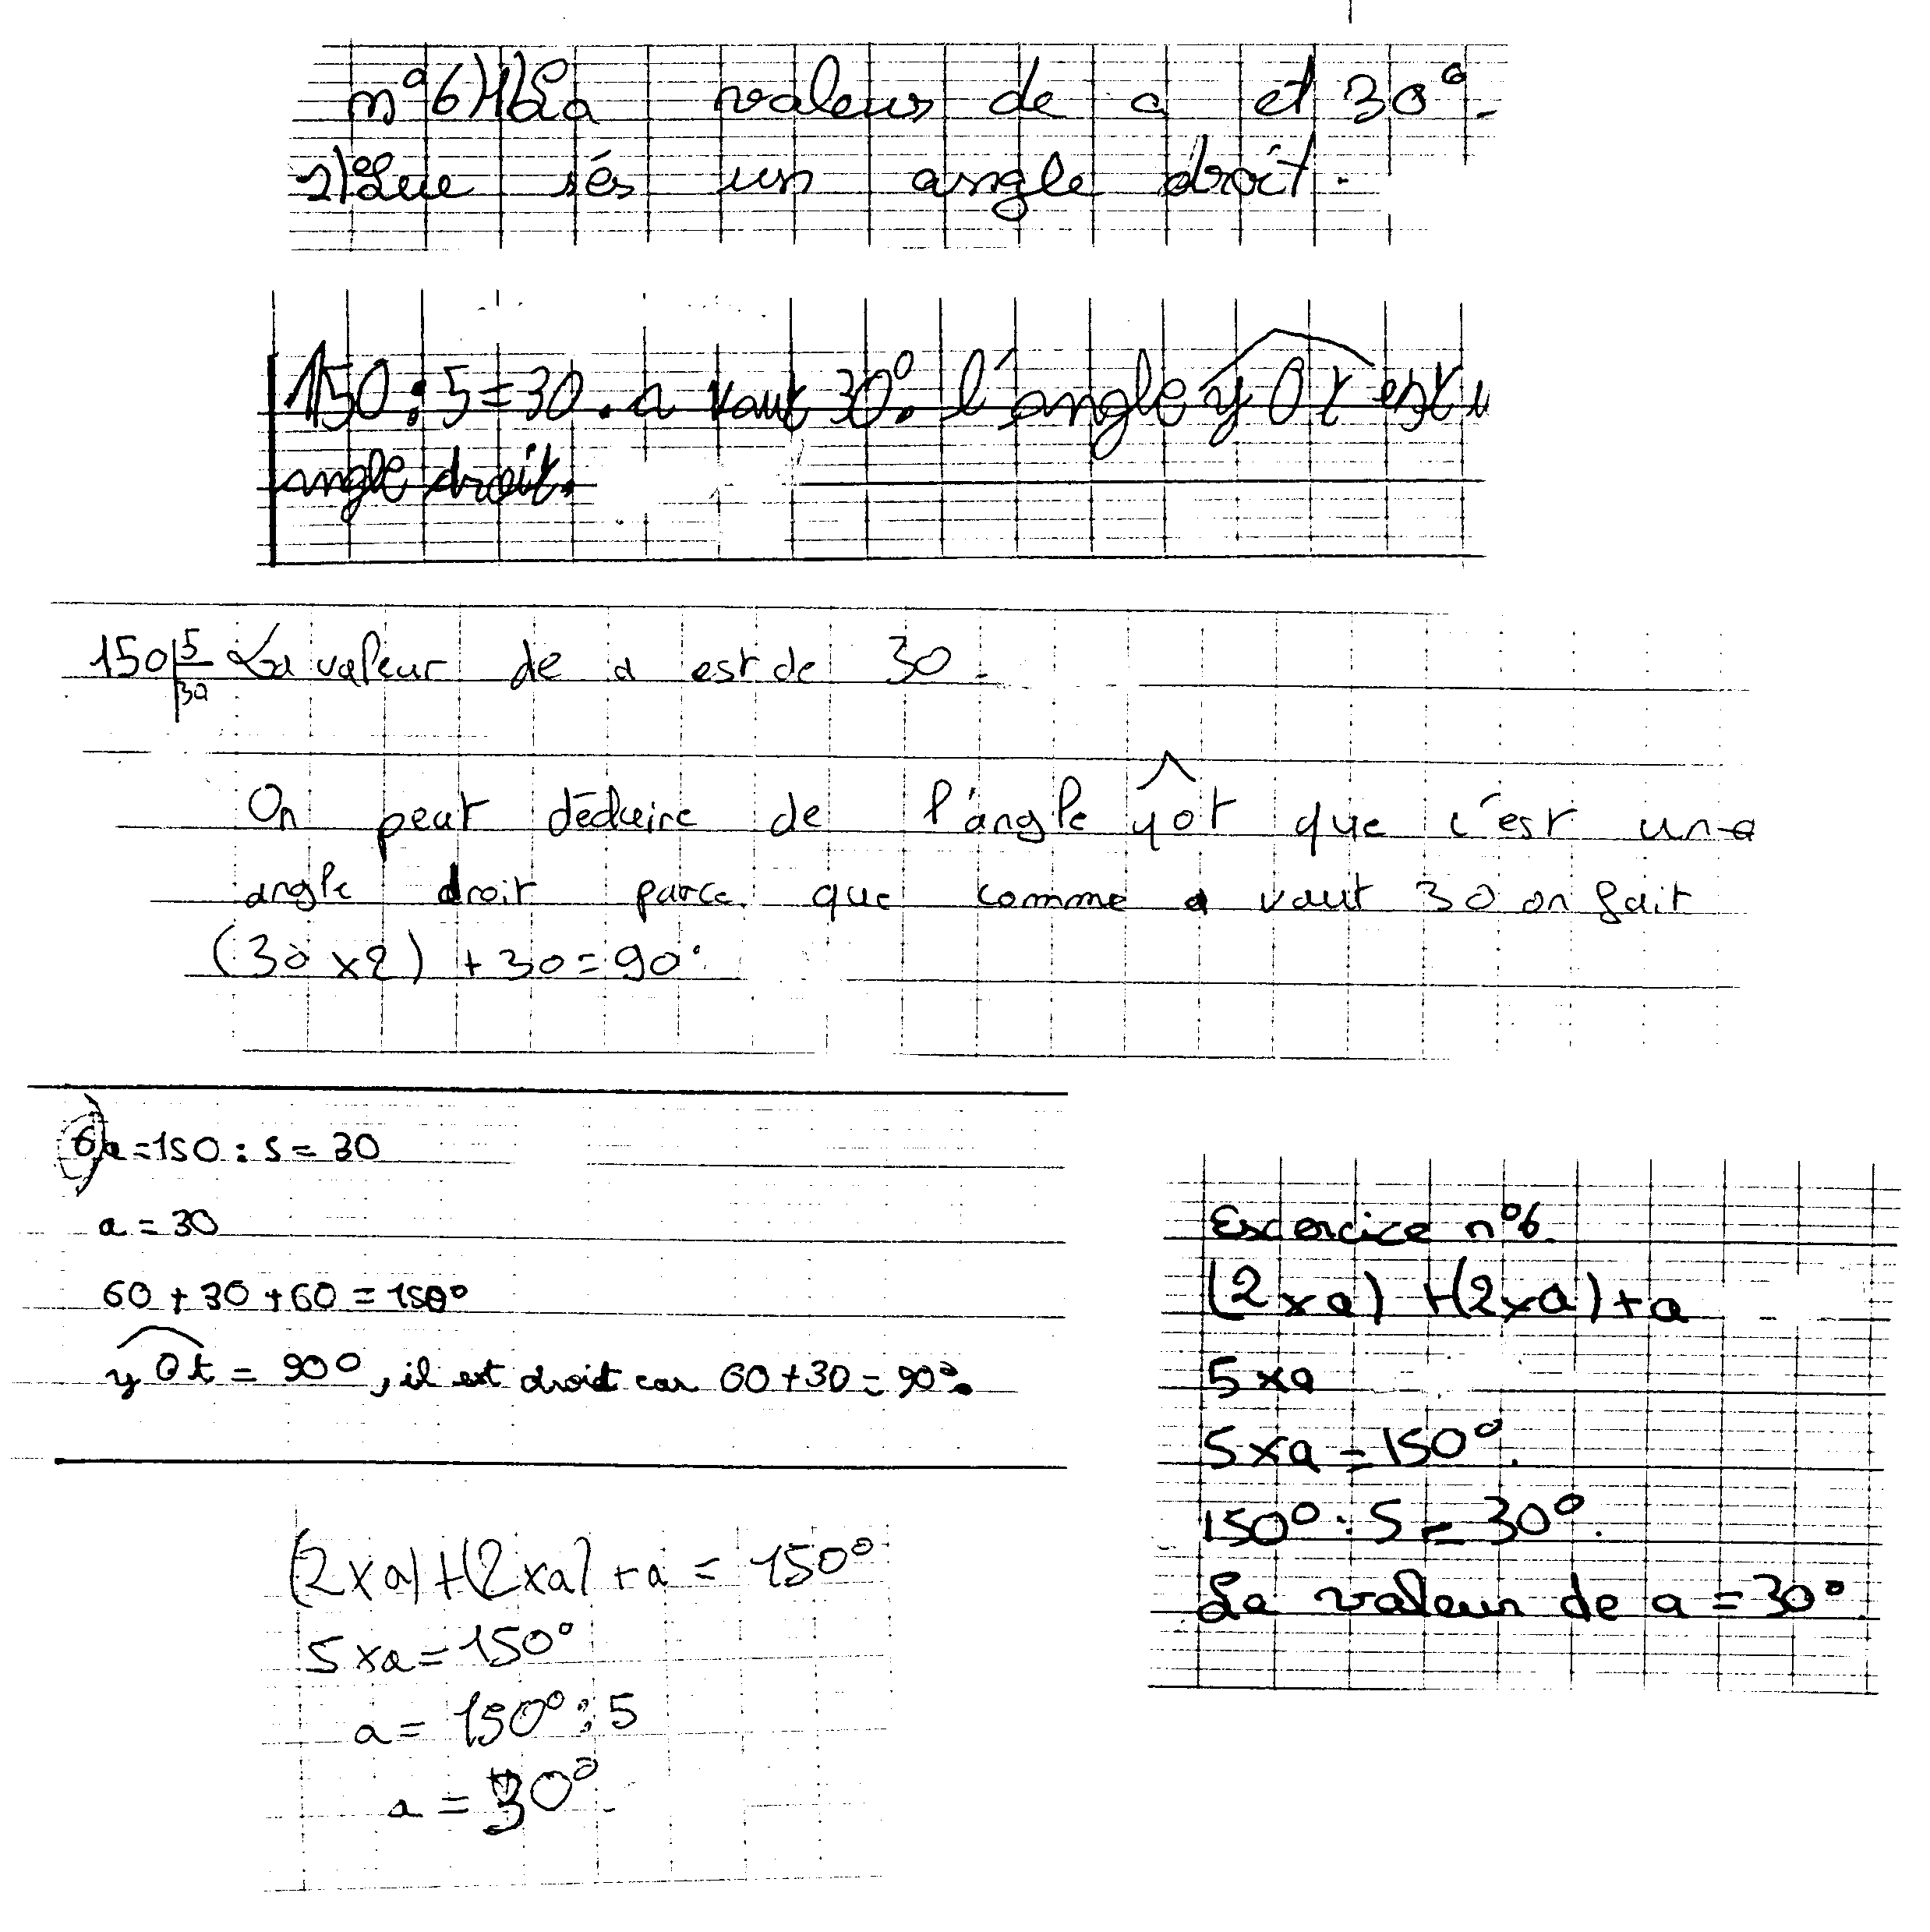 n°6)1)La valeur de a et 30°.
2)Que sés un angle droit.
150:5=30. a vaut 30°. l'angle yOt est u
angle droit.
150 5 La valeur de a est de 30.
30
On peut déduire de l'angle yot que c'est un
angle droit parce que comme a vaut 30 on fait
(30 x2) +30=90°
6) a=150:5=30
a=30
60+30+60=150°
yOt = 90°, il est droit car 60+30=90°.
Excercice n°6.
(2xa) +(2xa)+a
5xa
5xa=150°.
150°:5=30°.
La valeur de a=30°.
(2xa)+(2xa)+a = 150°
5xa=150°
a=150°:5
a=30°.